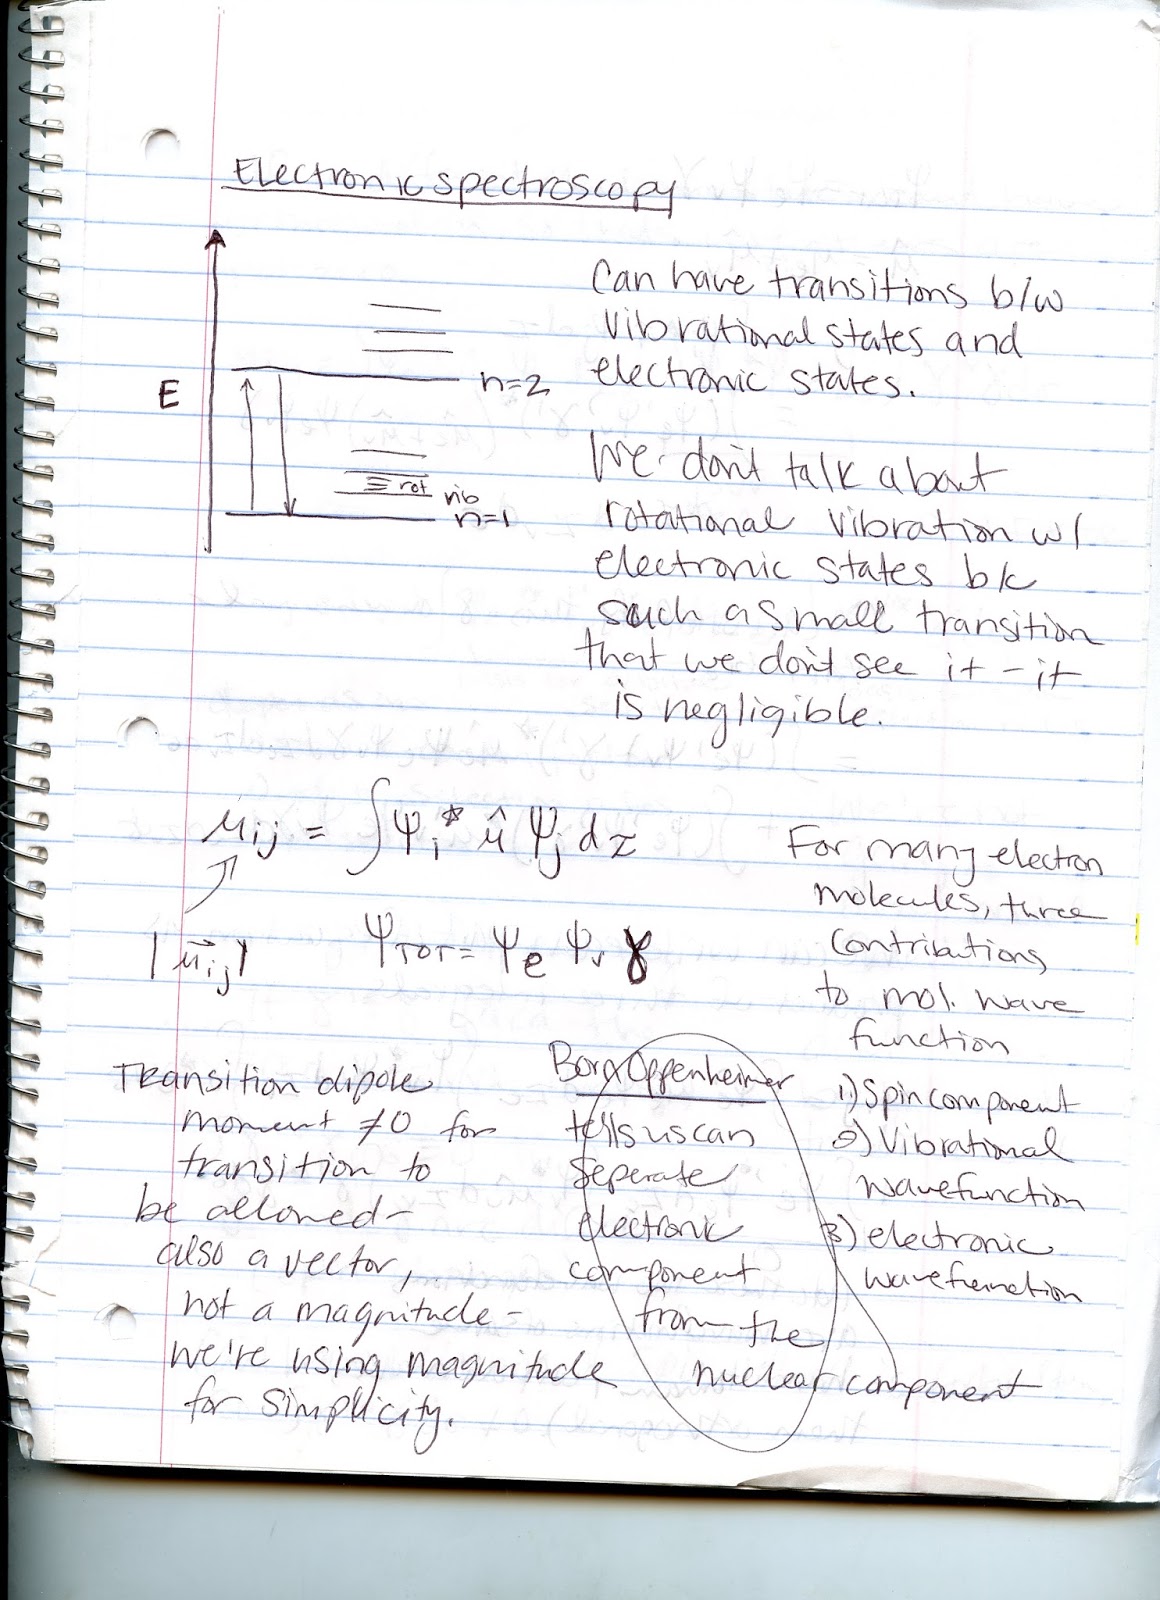 Electronic spectroscopy
E
n=2
rot
vib
n=1
Can have transitions b/w
vibrational states and
electronic states.
We don't talk about
rotational vibration w/
electronic states bk
such a small transition
that we don't see it - it
is negligible.
μij = ∫Ψi* μ̂ Ψj dτ
|μ⃗ij|
ΨTOT = Ψe Ψv γ
For many electron
molecules, three
contributions
to mol. wave
function
1) Spin component
2) Vibrational
wavefunction
3) electronic
wavefunction
Transition dipole
moment ≠0 for
transition to
be allowed-
also a vector,
not a magnitude -
we're using magnitude
for simplicity.
Born Oppenheimer
tells us can
seperate
electronic
component
from the
nuclear component